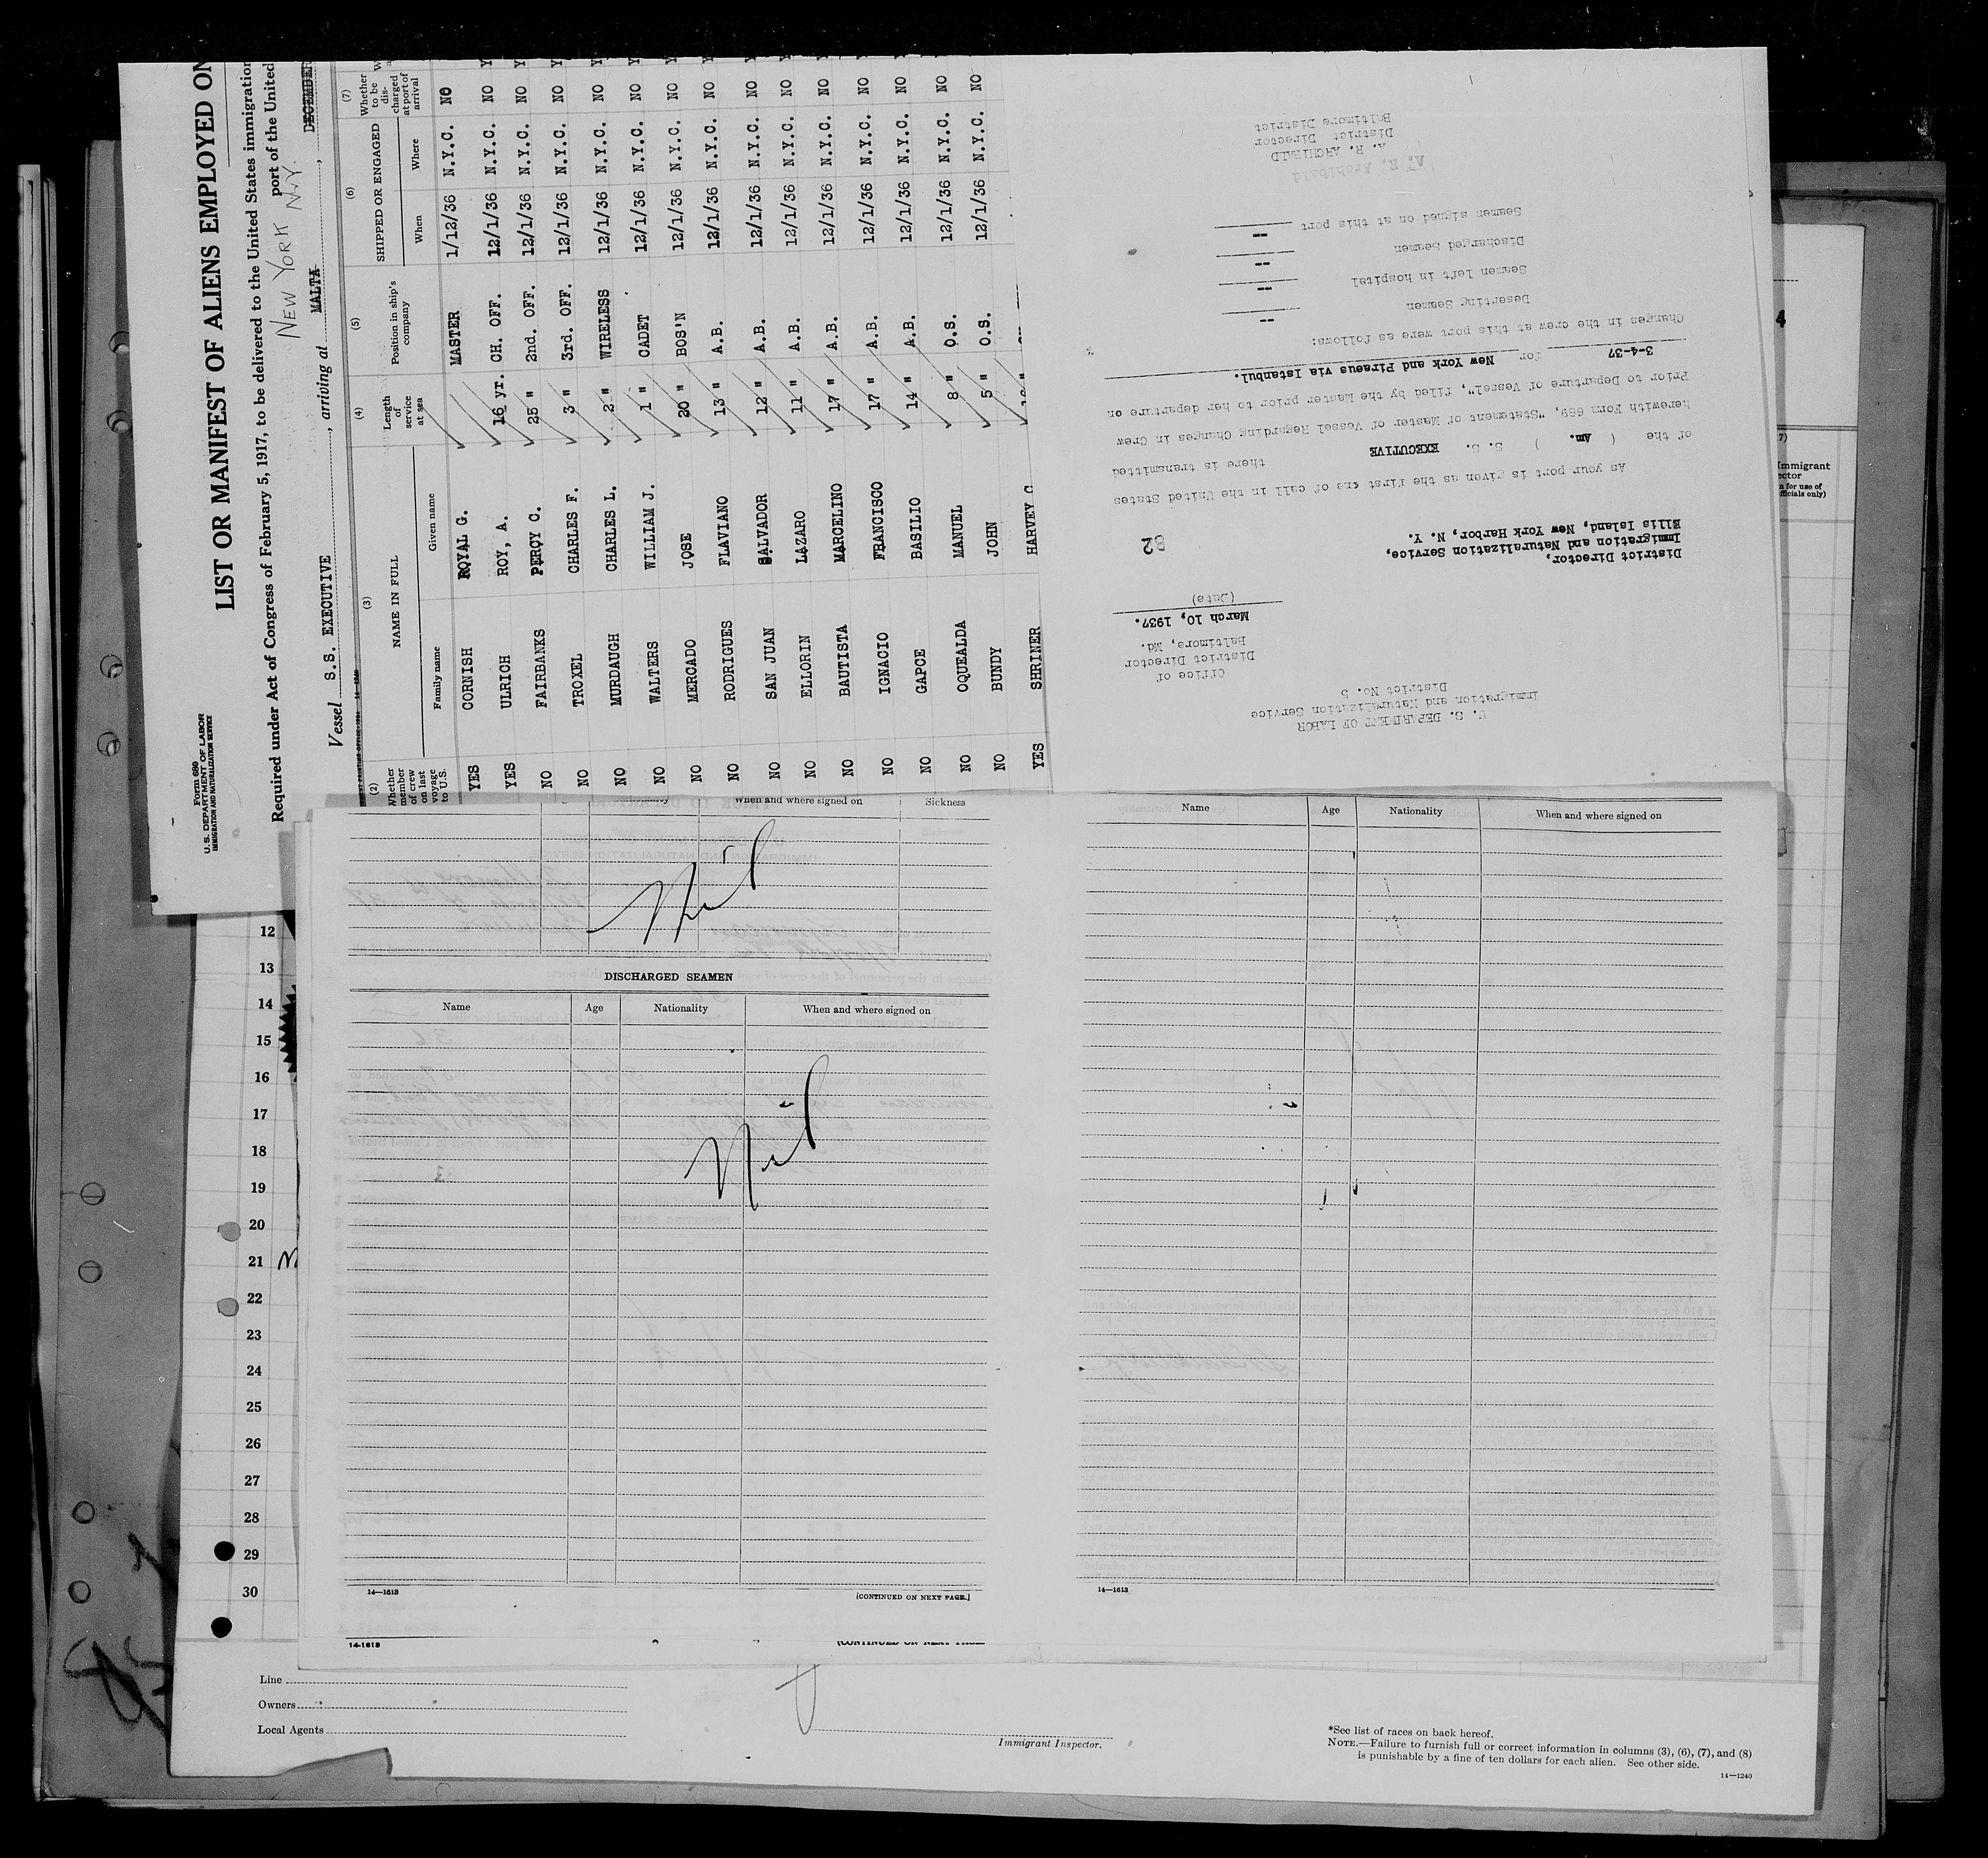 Form 680
U. S. DEPARTMENT OF LABOR
IMMIGRATION AND NATURALIZATION SERVICE
LIST OR MANIFEST OF ALIENS EMPLOYED ON
Required under Act of Congress of February 5, 1917, to be delivered to the United States immigration
port of the United
NEW YORK NY
Vessel S.S. EXECUTIVE, arriving at MALTA, DECEMBER
(2) (3) (4) (5) (6) (7)
Whether member of crew on last voyage to U.S. NAME IN FULL Length of service at sea Position in ship's company SHIPPED OR ENGAGED Whether to be discharged at port of arrival
Family name Given name When Where
YES CORNISH ROYAL G. MASTER 1/12/36 N.Y.C. NO
YES ULRICH ROY, A. 16 yr. CH. OFF. 12/1/36 N.Y.C. NO
NO FAIRBANKS PERCY C. 25 " 2nd. OFF. 12/1/36 N.Y.C. NO
NO TROXEL CHARLES F. 3 " 3rd. OFF. 12/1/36 N.Y.C. NO
NO MURDAUGH CHARLES L. 2 " WIRELESS 12/1/36 N.Y.C. NO
NO WALTERS WILLIAM J. 1 " CADET 12/1/36 N.Y.C. NO
NO MERCADO JOSE 20 " BOS'N 12/1/36 N.Y.C. NO
NO RODRIGUES FLAVIANO 13 " A.B. 12/1/36 N.Y.C. NO
NO SAN JUAN SALVADOR 12 " A.B. 12/1/36 N.Y.C. NO
NO ELLORIN LAZARO 11 " A.B. 12/1/36 N.Y.C. NO
NO BAUTISTA MARCELINO 17 " A.B. 12/1/36 N.Y.C. NO
NO IGNACIO FRANCISCO 17 " A.B. 12/1/36 N.Y.C. NO
NO GAPCE BASILIO 14 " A.B. 12/1/36 N.Y.C. NO
NO OQUEALDA MANUEL 8 " O.S. 12/1/36 N.Y.C. NO
NO BUNDY JOHN 5 " O.S. 12/1/36 N.Y.C. NO
YES SHRINER HARVEY
U. S. DEPARTMENT OF LABOR
Immigration and Naturalization Service
District No. 5
Office of
District Director
Baltimore, Md.
March 10, 1937.
(Date)
82
District Director,
Immigration and Naturalization Service,
Ellis Island, New York Harbor, N. Y.
As your port is given as the first one of call in the United States
of the ( Am. ) S. S. EXECUTIVE there is transmitted
herewith Form 689, "Statement of Master of Vessel Regarding Changes in Crew
Prior to Departure of Vessel", filed by the Master prior to her departure on
3-4-37 for New York and Piraeus via Istanbul.
Changes in the crew at this port were as follows:
Deserting Seamen --
Seamen left in hospital --
Discharged Seamen --
Seamen signed on at this port --
A. R. Archibald
A. R. ARCHIBALD
District Director
Baltimore District
4
7)
Immigrant
ector
n for use of
fficials only)
When and where signed on Sickness
Nil
DISCHARGED SEAMEN
Name Age Nationality When and where signed on
Nil
14—1613 [CONTINUED ON NEXT PAGE.]
14-1613
Name Age Nationality When and where signed on
14—1613
12
13
14
15
16
17
18
19
20
21
22
23
24
25
26
27
28
29
30
Line
Owners
Local Agents
Immigrant Inspector.
*See list of races on back hereof.
NOTE.—Failure to furnish full or correct information in columns (3), (6), (7), and (8)
is punishable by a fine of ten dollars for each alien. See other side.
14—1240